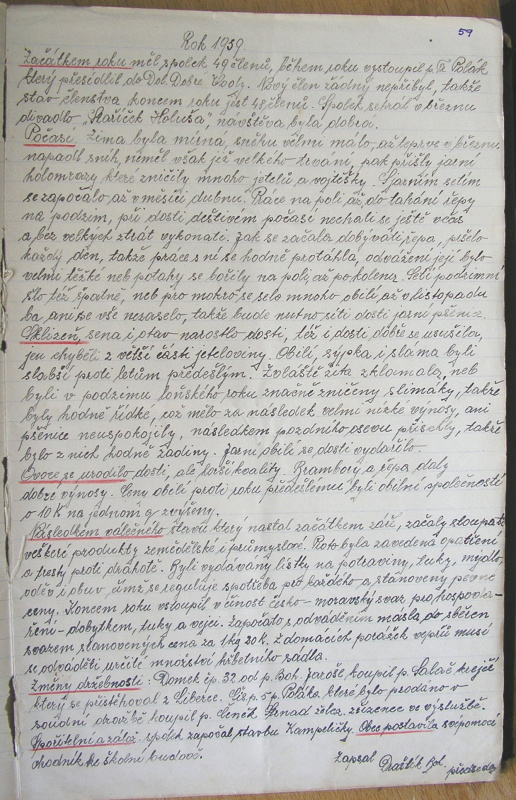 59
Rok 1939.
Začátkem roku měl spolek 49 členů, během roku vystoupil p. Fr. Polák
který přesídlil do Dol. Dobré Vody. Nový člen žádný nepřibyl, takže
stav členstva koncem roku jest 48 členů. Spolek sehrál v březnu
divadlo "Kaříček Holuša", návstěva byla dobrá.
Počasí. Zima byla mírná, sněhu velmi málo, až teprve v březnu
napadl sníh, neměl však již velkého trvání, pak přišly jarní
holomrazy které zničily mnoho jetelů a vojtěšky. S jarním setím
se započalo až v měsíci dubnu. Práce na poli až do tahání řepy
na podzim, při dosti deštivém počasí nechali se ještě včas
a bez velkých ztrát vykonati. Jak se začala dobývati řepa, pršelo
každý den, takže práce s ní se hodně protáhla, odvážení její bylo
velmi těžké neb potahy se bořily na poli až po kolena. Setí podzimní
šlo též špatně, neb pro mokro se selo mnoho obilí až v listopadu
ba ani se vše nezaselo, takže bude nutno síti dosti jarní pšenice.
Sklizeň, sena i otav narostlo dosti, též i dosti dobře se usušila,
jen chyběli z větší části jeteloviny. Obilí, sypká i sláma byli
slabší proti letům předešlým. Zvláště žita zklamala, neb
byli v podzemu loňského roku značně zničeny slimáky, takže
byly hodně řídké, což mělo za následek velmi nízké výnosy, ani
pšenice neuspokojily, následkem pozdního osevu přischly, takže
bylo z nich hodně zadiny. Jarní obilí se dosti vydařilo.
Ovoce se urodilo dosti, ale horší kvality. Brambory a řepa daly
dobré výnosy. Ceny obilí proti roku předešlému byli obilní společností
o 10 K na jednom q zvýšeny.
Následkem válečného stavu který nastal začátkem září, začaly stoupati
veškeré produkty zemědělské i průmyslové. Proto byla zavedena opatření
a tresty proti drahotě. Byli vydávány lístky na potraviny, tuky, mýdlo,
oděv i obuv, čímž se reguluje spotřeba pro každého a stanoveny pevné
ceny. Koncem roku vstoupil v činost česko-moravský svaz pro hospoda-
ření - dobytkem, tuky a vejci. Započato s odváděním másla do sběren
svazem stanovených cena za 1 kg 20 K. Z domácích porážek vepřů musí
se odváděti určité množství hřbetního sádla.
Změny držebnosti: Domek čp. 32. od p. Boh. Jaroše, koupil p. Salač krejčí
který se přistěhoval z Liberce. Čís. p. 5 p. Poláka které bylo prodáno v
soudní dražbě koupil p. Čeněk železn. zřízenec ve výslužbě.
Spořitelní a zálož. spolek započal stavbu Kampeličky. Obec postavila svépomocí
chodník ke školní budově.
Zapsal
Boh.
předseda